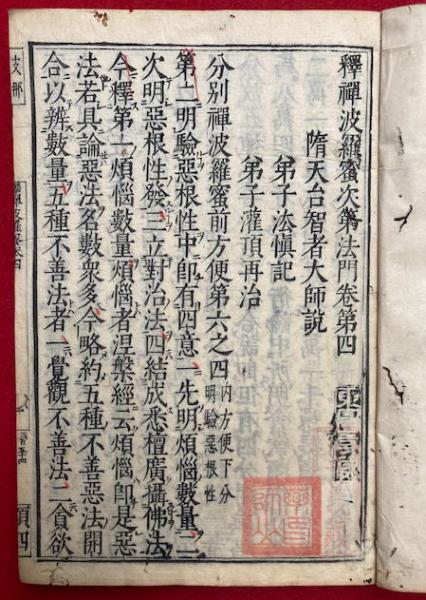 釋禪波羅蜜次第法門卷第四
隋天台智者大師說
弟子法慎記
弟子灌頂再治
分別禪波羅蜜前方便第六之四 內方便下分
明驗惡根性
第二明驗惡根性中即有四意一先明煩惱數量二
次明惡根性發三立對治法四結成悉檀廣攝佛法
今釋第一煩惱數量煩惱者涅槃經云煩惱即是惡
法若具論惡法名數眾多今略約五種不善惡法開
合以辨數量五種不善法者一覺觀不善法二貪欲
支那
頌四